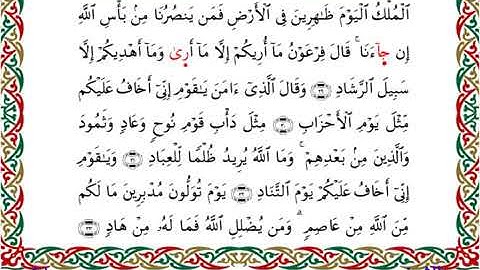 ٱلۡمُلۡكُ ٱلۡيَوۡمَ ظَٰهِرِينَ فِي ٱلۡأَرۡضِ فَمَن يَنصُرُنَا مِنۢ بَأۡسِ ٱللَّهِ
إِن جَآءَنَاۚ قَالَ فِرۡعَوۡنُ مَآ أُرِيكُمۡ إِلَّا مَآ أَرَىٰ وَمَآ أَهۡدِيكُمۡ إِلَّا
سَبِيلَ ٱلرَّشَادِ ٢٩ وَقَالَ ٱلَّذِيٓ ءَامَنَ يَٰقَوۡمِ إِنِّيٓ أَخَافُ عَلَيۡكُم
مِّثۡلَ يَوۡمِ ٱلۡأَحۡزَابِ ٣٠ مِثۡلَ دَأۡبِ قَوۡمِ نُوحٖ وَعَادٖ وَثَمُودَ
وَٱلَّذِينَ مِنۢ بَعۡدِهِمۡۚ وَمَا ٱللَّهُ يُرِيدُ ظُلۡمٗا لِّلۡعِبَادِ ٣١ وَيَٰقَوۡمِ
إِنِّيٓ أَخَافُ عَلَيۡكُمۡ يَوۡمَ ٱلتَّنَادِ ٣٢ يَوۡمَ تُوَلُّونَ مُدۡبِرِينَ مَا لَكُم
مِّنَ ٱللَّهِ مِنۡ عَاصِمٖۗ وَمَن يُضۡلِلِ ٱللَّهُ فَمَا لَهُۥ مِنۡ هَادٖ ٣٣